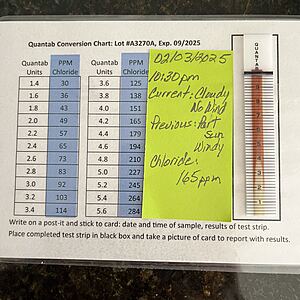 Quantab Conversion Chart: Lot #A3270A, Exp. 09/2025
Quantab Units PPM Chloride Quantab Units PPM Chloride
1.4 30 3.6 125
1.6 36 3.8 138
1.8 43 4.0 151
2.0 49 4.2 165
2.2 57 4.4 179
2.4 65 4.6 194
2.6 73 4.8 210
2.8 83 5.0 227
3.0 92 5.2 245
3.2 103 5.4 264
3.4 114 5.6 284
02/03/2025
10:30pm
Current: Cloudy
No Wind
Previous: Part
Sun
Windy
Chloride:
165 ppm
QUANTAB
Write on a post-it and stick to card: date and time of sample, results of test strip.
Place completed test strip in black box and take a picture of card to report with results.